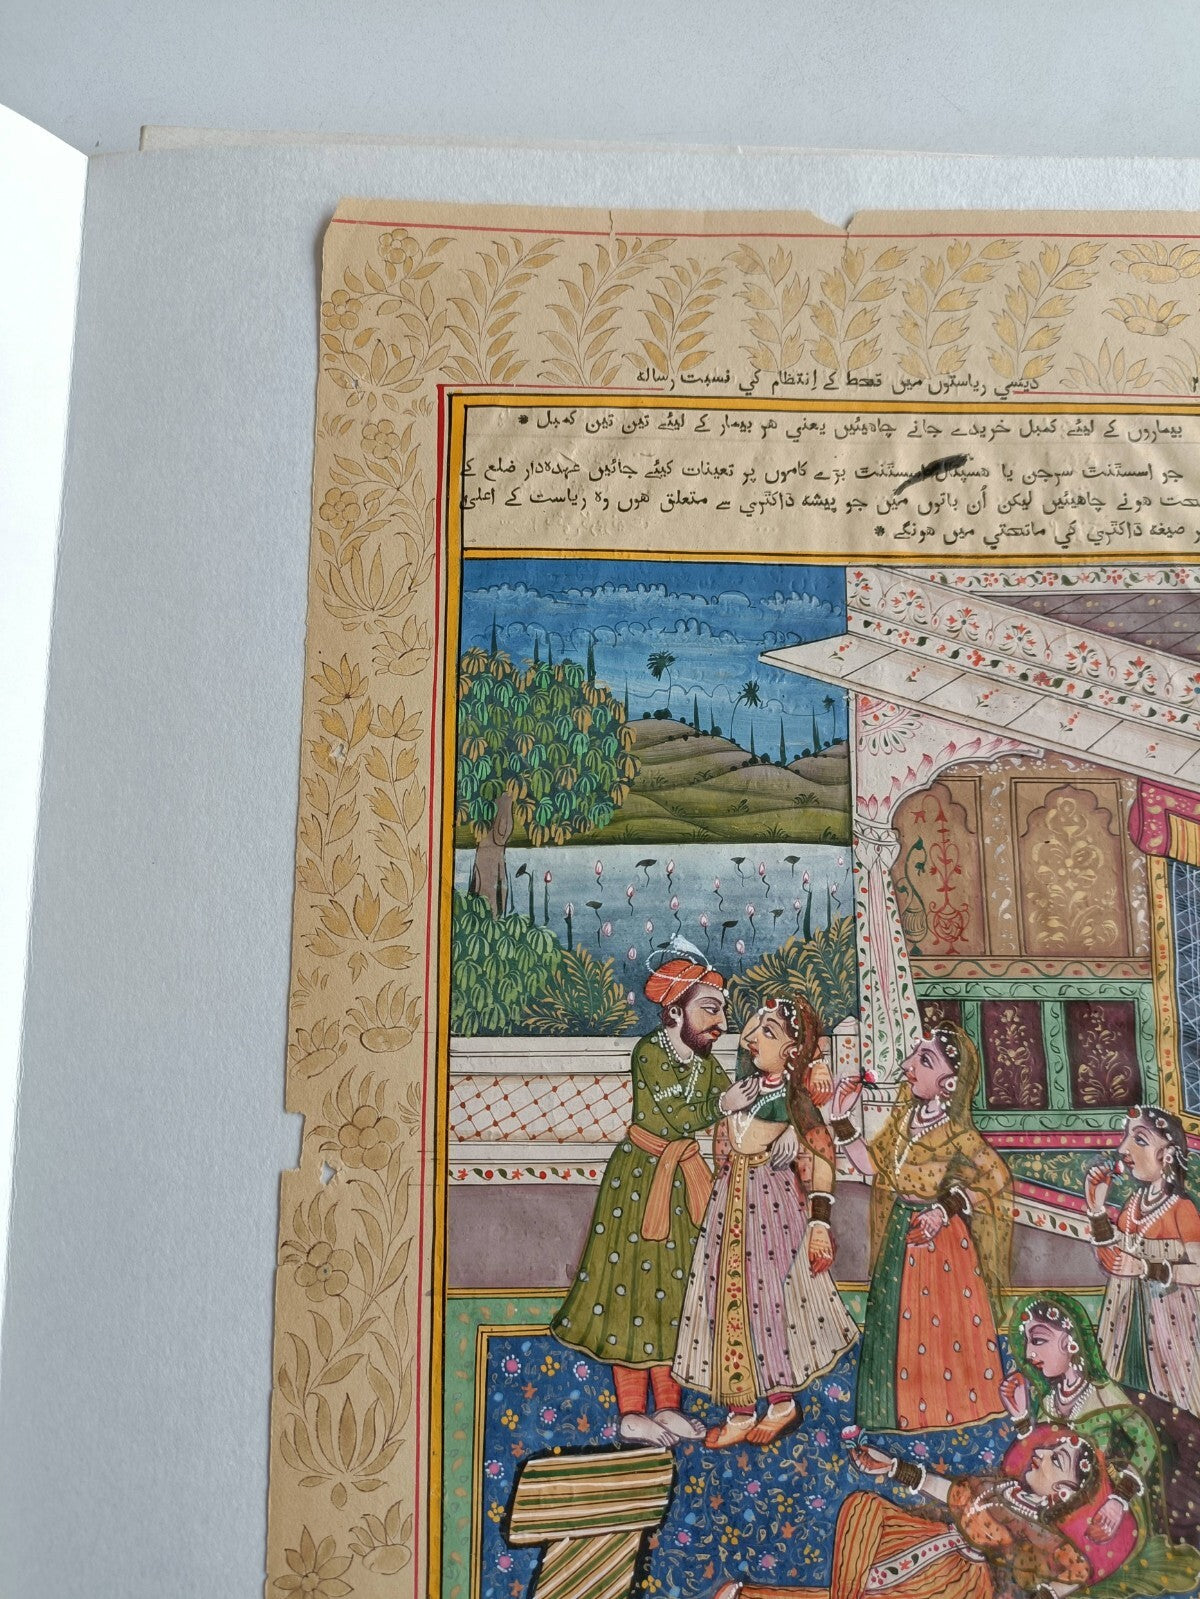 دیسي ریاستوں میں قحط کے اِنتظام کي نسبت رسالہ
بیماروں کے لیئے کمبل خریدے جانے چاهیئیں یعني هر بیمار کے لیئے تین تین کمبل *
جو اسسٹنٹ سرجن یا هسپٹل اسسٹنٹ بڑے کاموں پر تعینات کیئے جائیں عہدہدار ضلع کے
هونے چاهیئیں لیکن اُن باتوں میں جو پیشہ ڈاکٹري سے متعلق هوں وہ ریاست کے اعلیٰ
صیغہ ڈاکٹري کي ماتحتي میں هونگے *